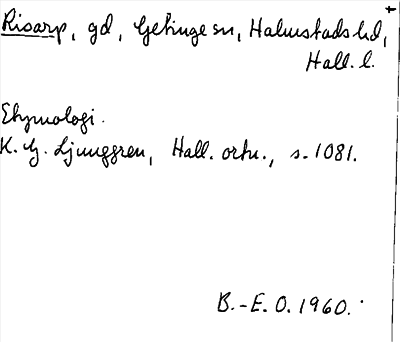 Risarp, gd, Getinge sn, Halmstads hd,
Hall. l.
Etymologi.
K. G. Ljunggren, Hall. ortn., s. 1081.
B.-E. O. 1960.